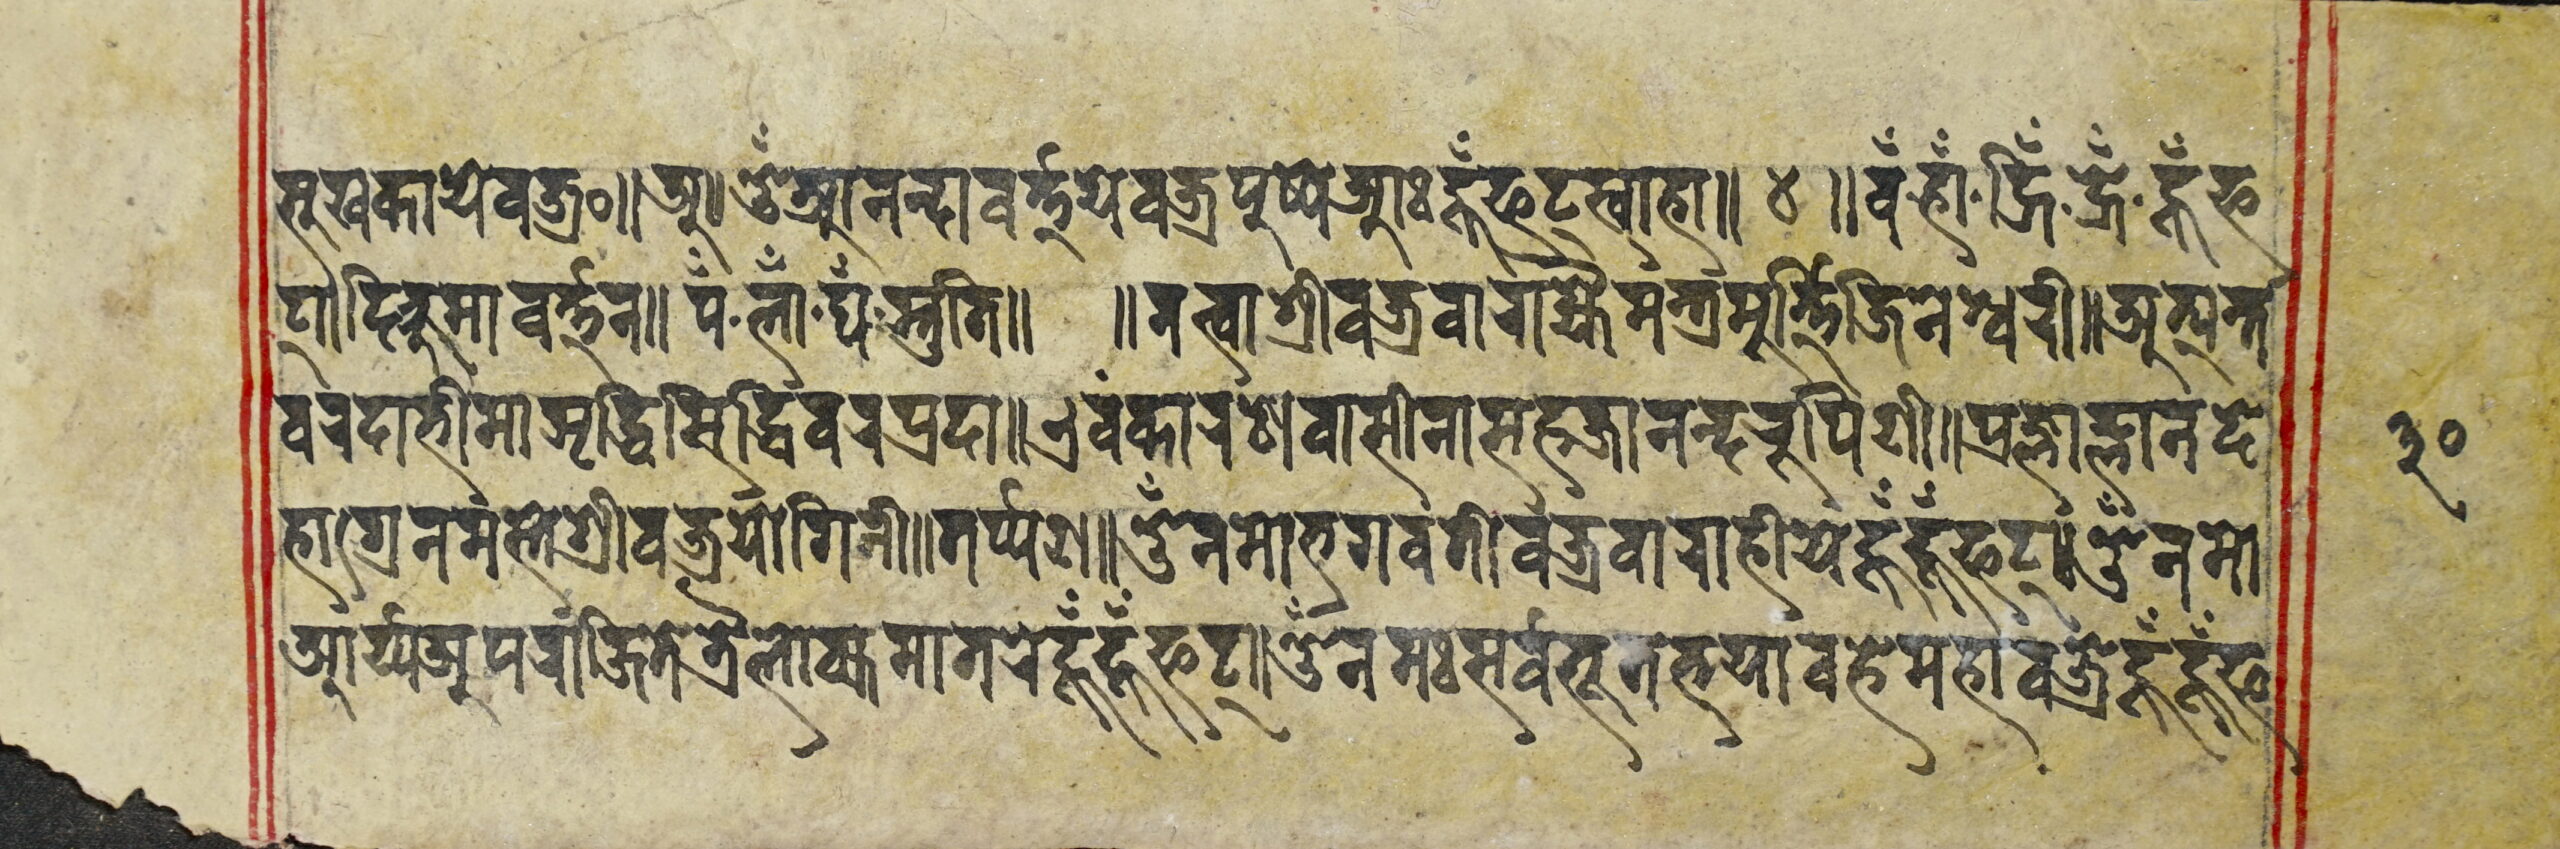 सूखकायेवज्र०॥अ॥ॐआनन्दावर्त्तयेवज्रपुष्पेआःहूँफट्स्वाहा॥ ४ ॥वँ·हाँ·ह्रिँ·ह्रेँ·हूँफ
टादिक्रमावर्त्तन॥ पँ·लाँ·घँ·स्तुति॥ ॥नत्वाश्रीवज्रवाराह्यैमंन्त्रमूर्त्तिजिनेश्वरी॥अत्यन्त
वरदाभीमासृद्धिसिद्धिवरप्रदा॥एवंकारंथवासीनासहजानन्दरूपिणी॥प्रज्ञाज्ञानदे
हाग्रेनमंस्तेश्रीवज्रयोगिनी॥तर्प्पण॥ॐनमोभगवतीवज्रवाराहीयेहूँहूँफट्॥ॐनमो
आर्य्यअपराजितेत्रैलोक्यमातरेहूँहूँफट्॥ॐनमःसर्वभूतभयावहेमहावज्रेहूँहूँफ
३०